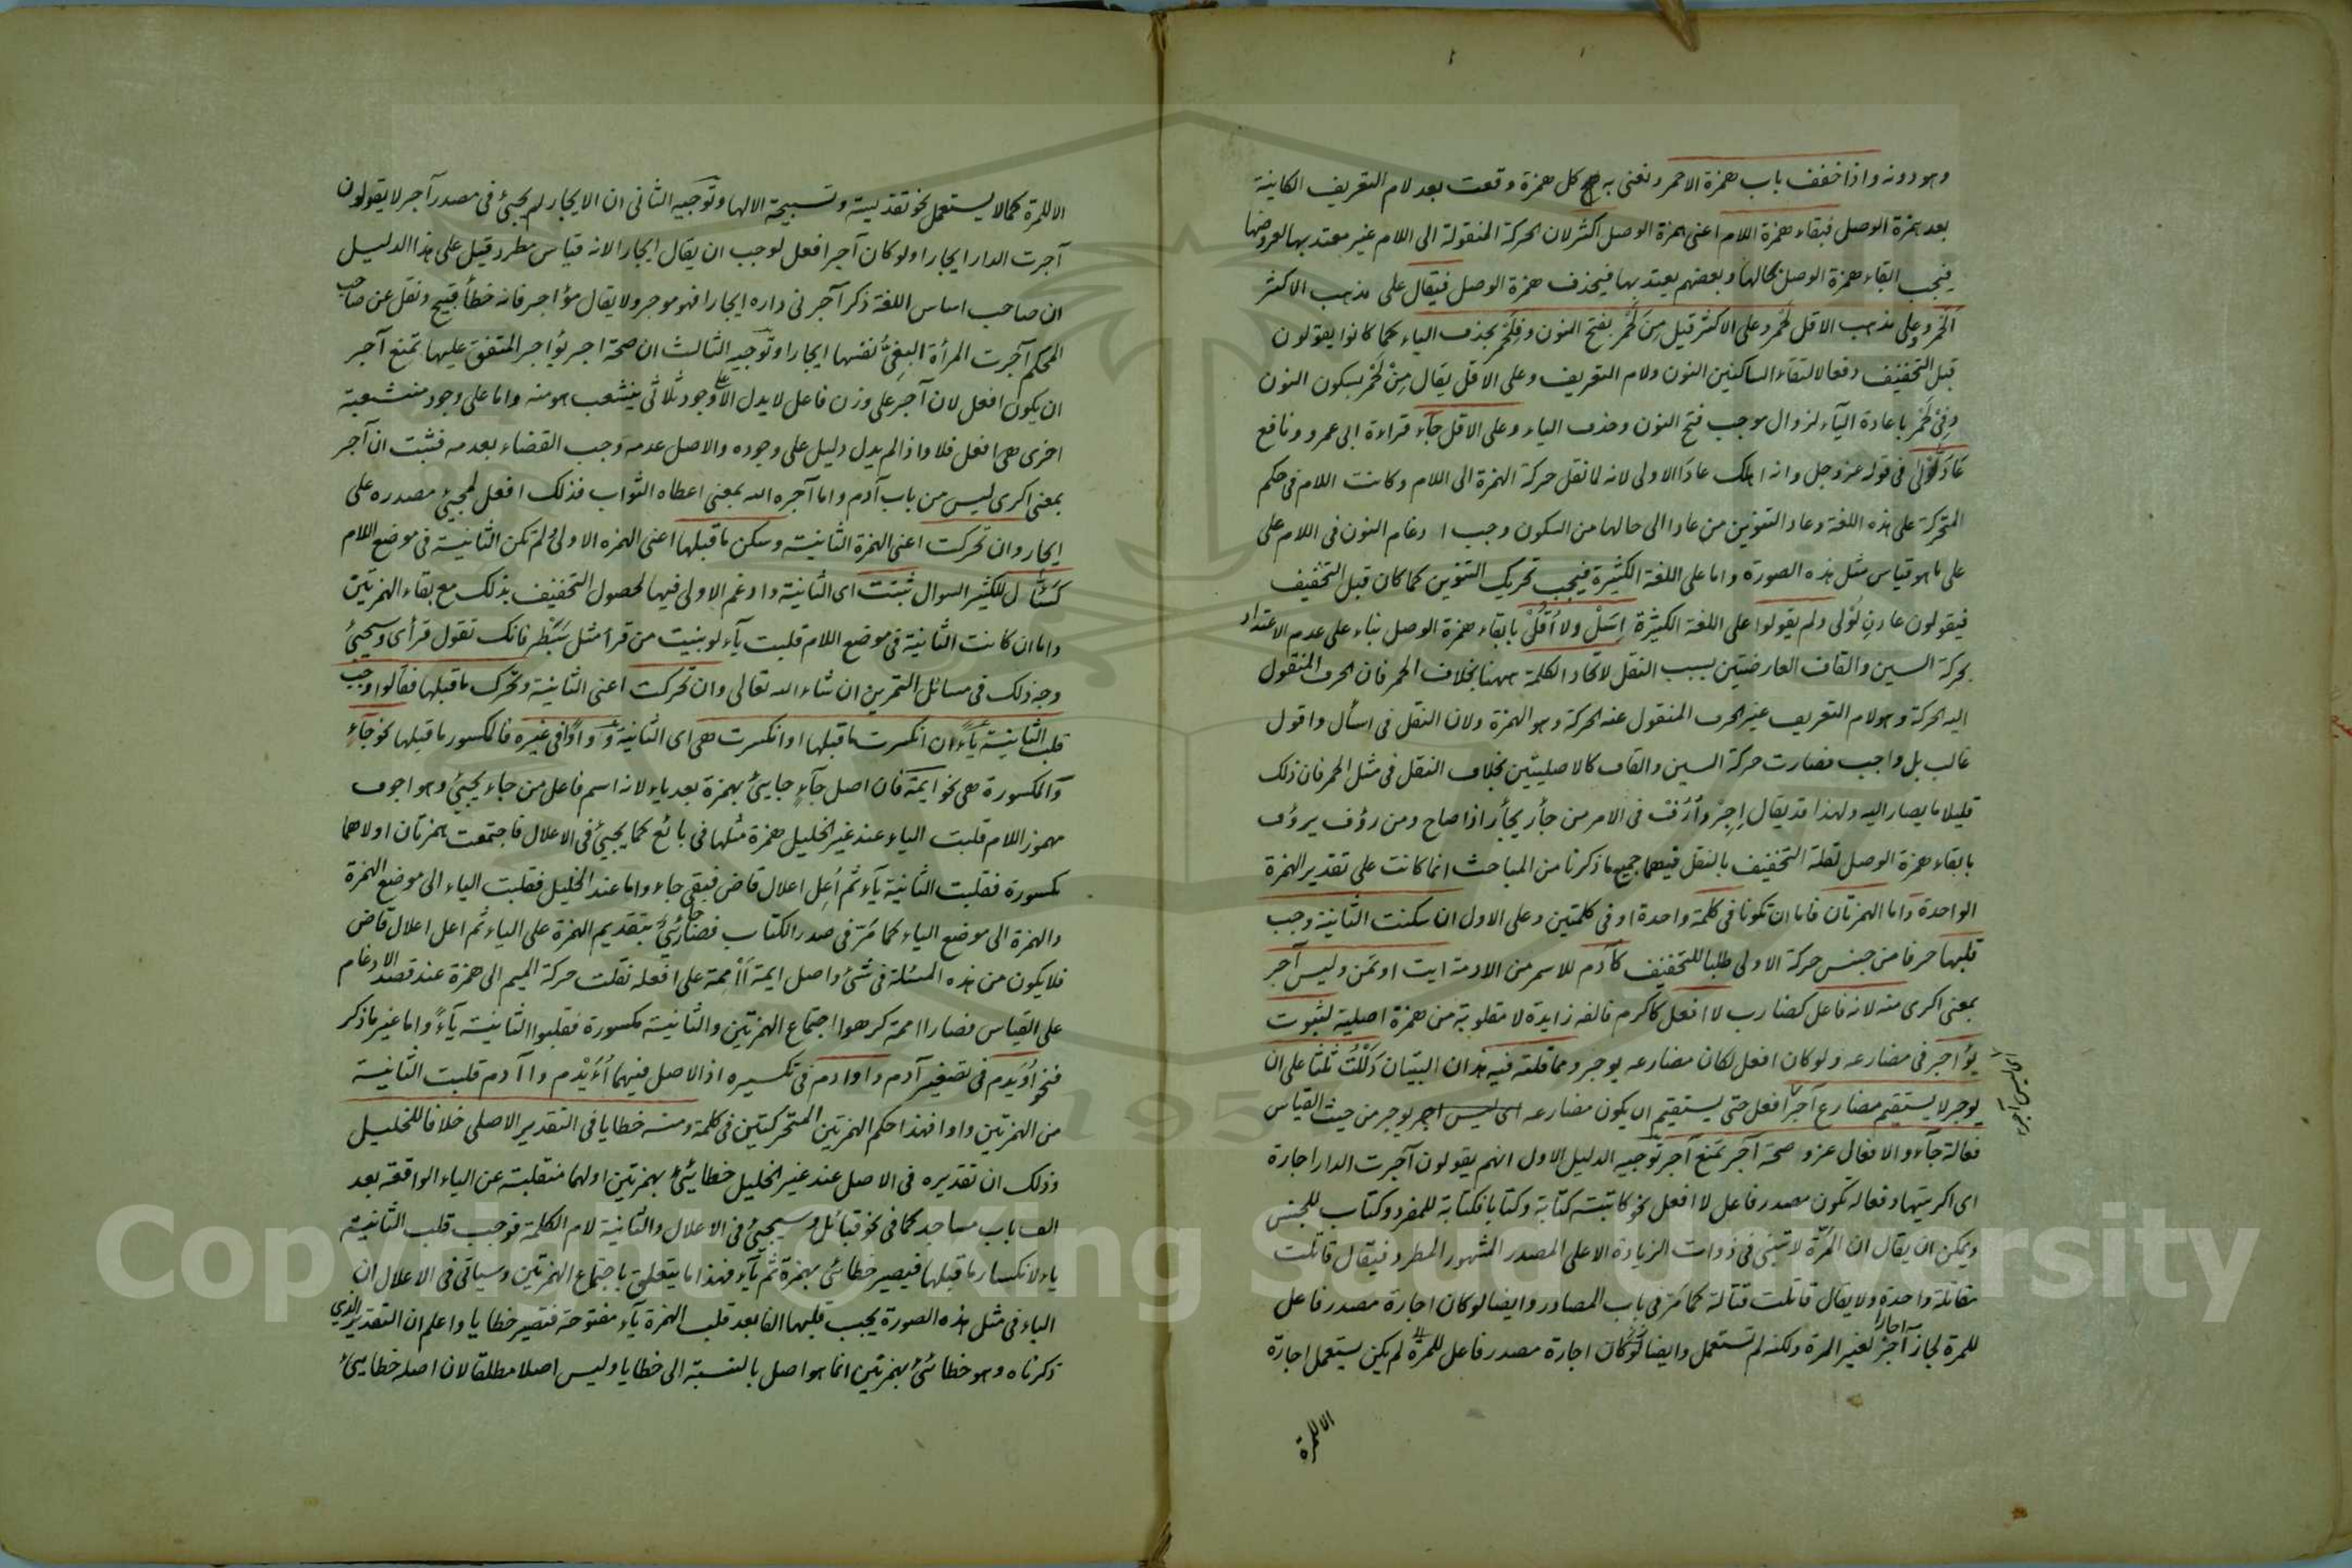 وهو دونه واذا خفف باب همزة الاحمر ونعنى به كل همزة وقعت بعد لام التعريف الكاينة
بعد همزة الوصل فبقاء همزة اللام اعنى همزة الوصل اكثر لان الحركة المنقولة الى اللام غير معتد بها لعروضها
فيجب ابقاء همزة الوصل بحالها وبعضهم يعتد بها فيحذف همزة الوصل فيقال على مذهب الاكثر
اَلَحْمَر وعلى مذهب الاقل لَحْمَر وعلى الاكثر قيل مِنَ لَحْمَر بفتح النون وفِلَحْمَر بحذف الياء كما كانوا يقولون
قبل التخفيف دفعا لالتقاء الساكنين النون ولام التعريف وعلى الاقل يقال مِنْ لَحْمَر بسكون النون
وفِى لَحْمَر باعادة الياء لزوال موجب فتح النون وحذف الياء وعلى الاقل جآء قراءة ابى عمرو ونافع
عَادَلُّوْلى فى قوله عز وجل وانه اهلك عادًا الاولى لانه لما نقل حركة الهمزة الى اللام وكانت اللام فى حكم
المتحركة على هذه اللغة وعاد التنوين من عادا الى حالها من السكون وجب ادغام النون فى اللام على
على ما هو قياس مثل هذه الصورة واما على اللغة الكثيرة فيجب تحريك التنوين كما كان قبل التخفيف
فيقولون عادنِ لُوْلى ولم يقولوا على اللغة الكثيرة اِسَلْ ولا اُقُلْ بابقاء همزة الوصل بناء على عدم الاعتداد
بحركة السين والقاف العارضتين بسبب النقل لاتحاد الكلمة ههنا بخلاف الحمر فان الحرف المنقول
اليه الحركة وهو لام التعريف غير الحرف المنقول عنه الحركة وهو الهمزة ولان النقل فى اسأل واقول
غالب بل واجب فصارت حركة السين والقاف كالاصليتين بخلاف النقل فى مثل الحمر فان ذلك
قليلا ما يصار اليه ولهذا قد يقال اِجَرْ واُرُفْ فى الامر من جأر يجأر اذا صاح ومن رؤف يرؤف
بابقاء همزة الوصل لقلة التخفيف بالنقل فيهما جميع ما ذكرنا من المباحث انما كانت على تقدير الهمزة
الواحدة واما الهمزتان فاما ان تكونا فى كلمة واحدة او فى كلمتين وعلى الاول ان سكنت الثانية وجب
قلبها حرفا من جنس حركة الاولى طلبا للتخفيف كآدم للاسمر من الادمة ايت اوتمن وليس آجر
بمعنى اكرى منه لانه فاعل كضارب لا افعل كاكرم فالفه زايدة لا مقلوبة من همزة اصلية لثبوت
يؤاجر فى مضارعه ولو كان افعل لكان مضارعه يوجر ومما قلته فيه هذان البيتان دَلَلْتُ ثلثا على ان
يوجر لا يستقيم مضارع آجر افعل حتى يستقيم ان يكون مضارعه اى ليس اجر يوجر من حيث القياس
فعالة جآء والافعال عز وصحة آجر تمنع آجر توجيه الدليل الاول انهم يقولون آجرت الدار اجارة
اى اكريتها وفعالة يكون مصدر فاعل لا افعل نحو كاتبته كتابة وكتابا فكتابة للمفرد وكتاب للجنس
ويمكن ان يقال ان المَرَّة لا تبنى فى ذوات الزيادة الا على المصدر المشهور المطرد فيقال قاتلت
مقاتلة واحدة ولا يقال قاتلت قتالة كما مر فى باب المصادر وايضا لو كان اجارة مصدر فاعل
للمرة لجاز آجر اجارا لغير المرة ولكنه لم تستعمل وايضا لو كان اجارة مصدر فاعل للمرة لم يكن يستعمل اجارة
الا للمرة
الا للمرة كما لا يستعمل نحو تقديسة وتسبيحة الا لها وتوجيه الثانى ان الايجار لم يجئ فى مصدر آجر لا يقولون
آجرت الدار ايجارا ولو كان آجر افعل لوجب ان يقال ايجارا لانه قياس مطرد قيل على هذا الدليل
ان صاحب اساس اللغة ذكر آجر فى داره ايجارا فهو موجر ولا يقال مؤاجر فانه خطأ قبيح ونقل عن صاحب
المحكم آجرت المرأة البغىُّ نفسها ايجارا وتوجيه الثالث ان صحة اجر يؤاجر المتفق عليها تمنع آجر
ان يكون افعل لان آجر على وزن فاعل لا يدل الا على وجود ثلاثى ينشعب هو منه واما على وجود منشعبة
اخرى هى افعل فلا واذا لم يدل دليل على وجوده والاصل عدمه وجب القضاء بعدمه فثبت ان آجر
بمعنى اكرى ليس من باب آدم واما آجره الله بمعنى اعطاه الثواب فذلك افعل لمجيئ مصدره على
ايجار وان تحركت اعنى الهمزة الثانية وسكن ما قبلها اعنى الهمزه الاولى ولم تكن الثانية فى موضع اللام
كسَئَّال للكثير السوال ثبتت اى الثانية وادغم الاولى فيها لحصول التخفيف بذلك مع بقاء الهمزتين
واما ان كانت الثانية فى موضع اللام قلبت يآء لو بنيت من قرأ مثل سَبَطْر فانك تقول قرأى وسيجئ
وجه ذلك فى مسائل التمرين ان شاء الله تعالى وان تحركت اعنى الثانية وتحرك ما قبلها فقالوا وجب
قلب الثانية يآءً ان انكسرت ما قبلها او انكسرت هى اى الثانية وَ واوًا فى غيره فالمكسور ما قبلها نحو جآءٍ
والمكسورة هى نحو ايمة فان اصل جآءٍ جايئ بهمزة بعد ياء لانه اسم فاعل من جاء يجيئ وهو اجوف
مهموز اللام قلبت الياء عند غير الخليل همزة مثلها فى بائع كما يجيئ فى الاعلال فاجتمعت همزتان اولاهما
مكسورة فقلبت الثانية يآء ثم اُعِل اعلال قاض فبقى جاء واما عند الخليل فقلبت الياء الى موضع الهمزة
والهمزة الى موضع الياء كما مَرّ فى صدر الكتاب فصار جائىٌ بتقديم الهمزة على الياء ثم اعل اعلال قاض
فلا يكون من هذه المسئلة فى شئ واصل ايمة أَأْمِمة على افعلة نقلت حركة الميم الى همزة عند قصد الادغام
على القياس فصار اامة كرهوا اجتماع الهمزتين والثانية مكسورة فقلبوا الثانية يآءً واما غير ما ذكر
فنحو اُوَيْدم فى تصغير آدم واوادم فى تكسيره اذ الاصل فيهما اُءَيْدم و اآدم قلبت الثانية
من الهمزتين واوا فهذا حكم الهمزتين المتحركتين فى كلمة ومنه خطايا فى التقدير الاصلى خلافا للخليل
وذلك ان تقديره فى الاصل عند غير الخليل خطائئ بهمزتين اولهما منقلبة عن الياء الواقعة بعد
الف باب مساجد كما فى نحو قبائل وسيجيئ فى الاعلال والثانية لام الكلمة فوجب قلب الثانية
ياء لانكسار ما قبلها فيصير خطائى بهمزة ثم يآء فهذا ما يتعلق باجتماع الهمزتين وسياتى فى الاعلال ان
الياء فى مثل هذه الصورة يجب قلبها الفا بعد قلب الهمزة يآء مفتوحة فتصير خطايا واعلم ان التقدير الذى
ذكرناه وهو خطائئ بهمزتين انما هو اصل بالنسبة الى خطايا وليس اصلا مطلقا لان اصله خطايئ
Copyright © King Saud University
195